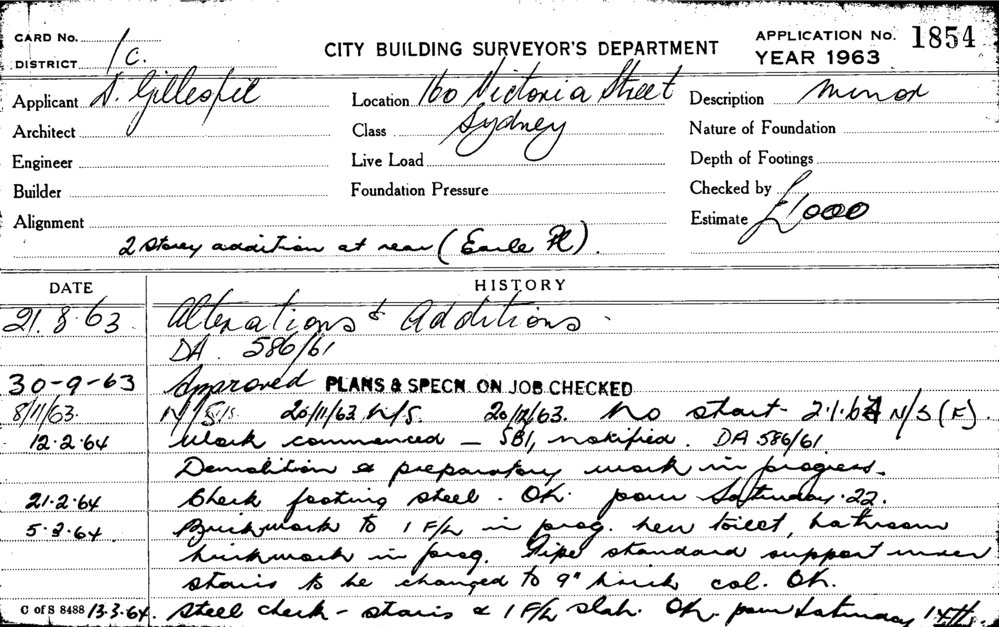 CARD No. 1C. CITY BUILDING SURVEYOR'S DEPARTMENT APPLICATION No. 1854
DISTRICT YEAR 1963
Applicant D. Gillespie Location 160 Victoria Street Description Minor
Architect Class Sydney Nature of Foundation
Engineer Live Load Depth of Footings
Builder Foundation Pressure Checked by
Alignment Estimate £1000
2 Storey addition at rear (Earle Pl).
DATE HISTORY
21.8.63. Alterations & Additions.
DA. 586/61
30-9-63 Approved PLANS & SPECN. ON JOB CHECKED
8/11/63. N/S 20/11/63. N/S. 20/12/63. No start - 2.1.64 N/S (F).
12.2.64 Work commenced - SBI, notified. DA 586/61
Demolition & preparatory work in progress.
21.2.64 Check footing steel. Ok. pour Saturday 22.
5.3.64. Brickwork to 1 F/L in prog. new toilet, bathroom
brickwork in prog. Pipe standard support under
stairs to be changed to 9" brick col. Ok.
C of S 8488 13.3.64. Steel check - stairs & 1 F/L slab. Ok. pour Saturday 14th.